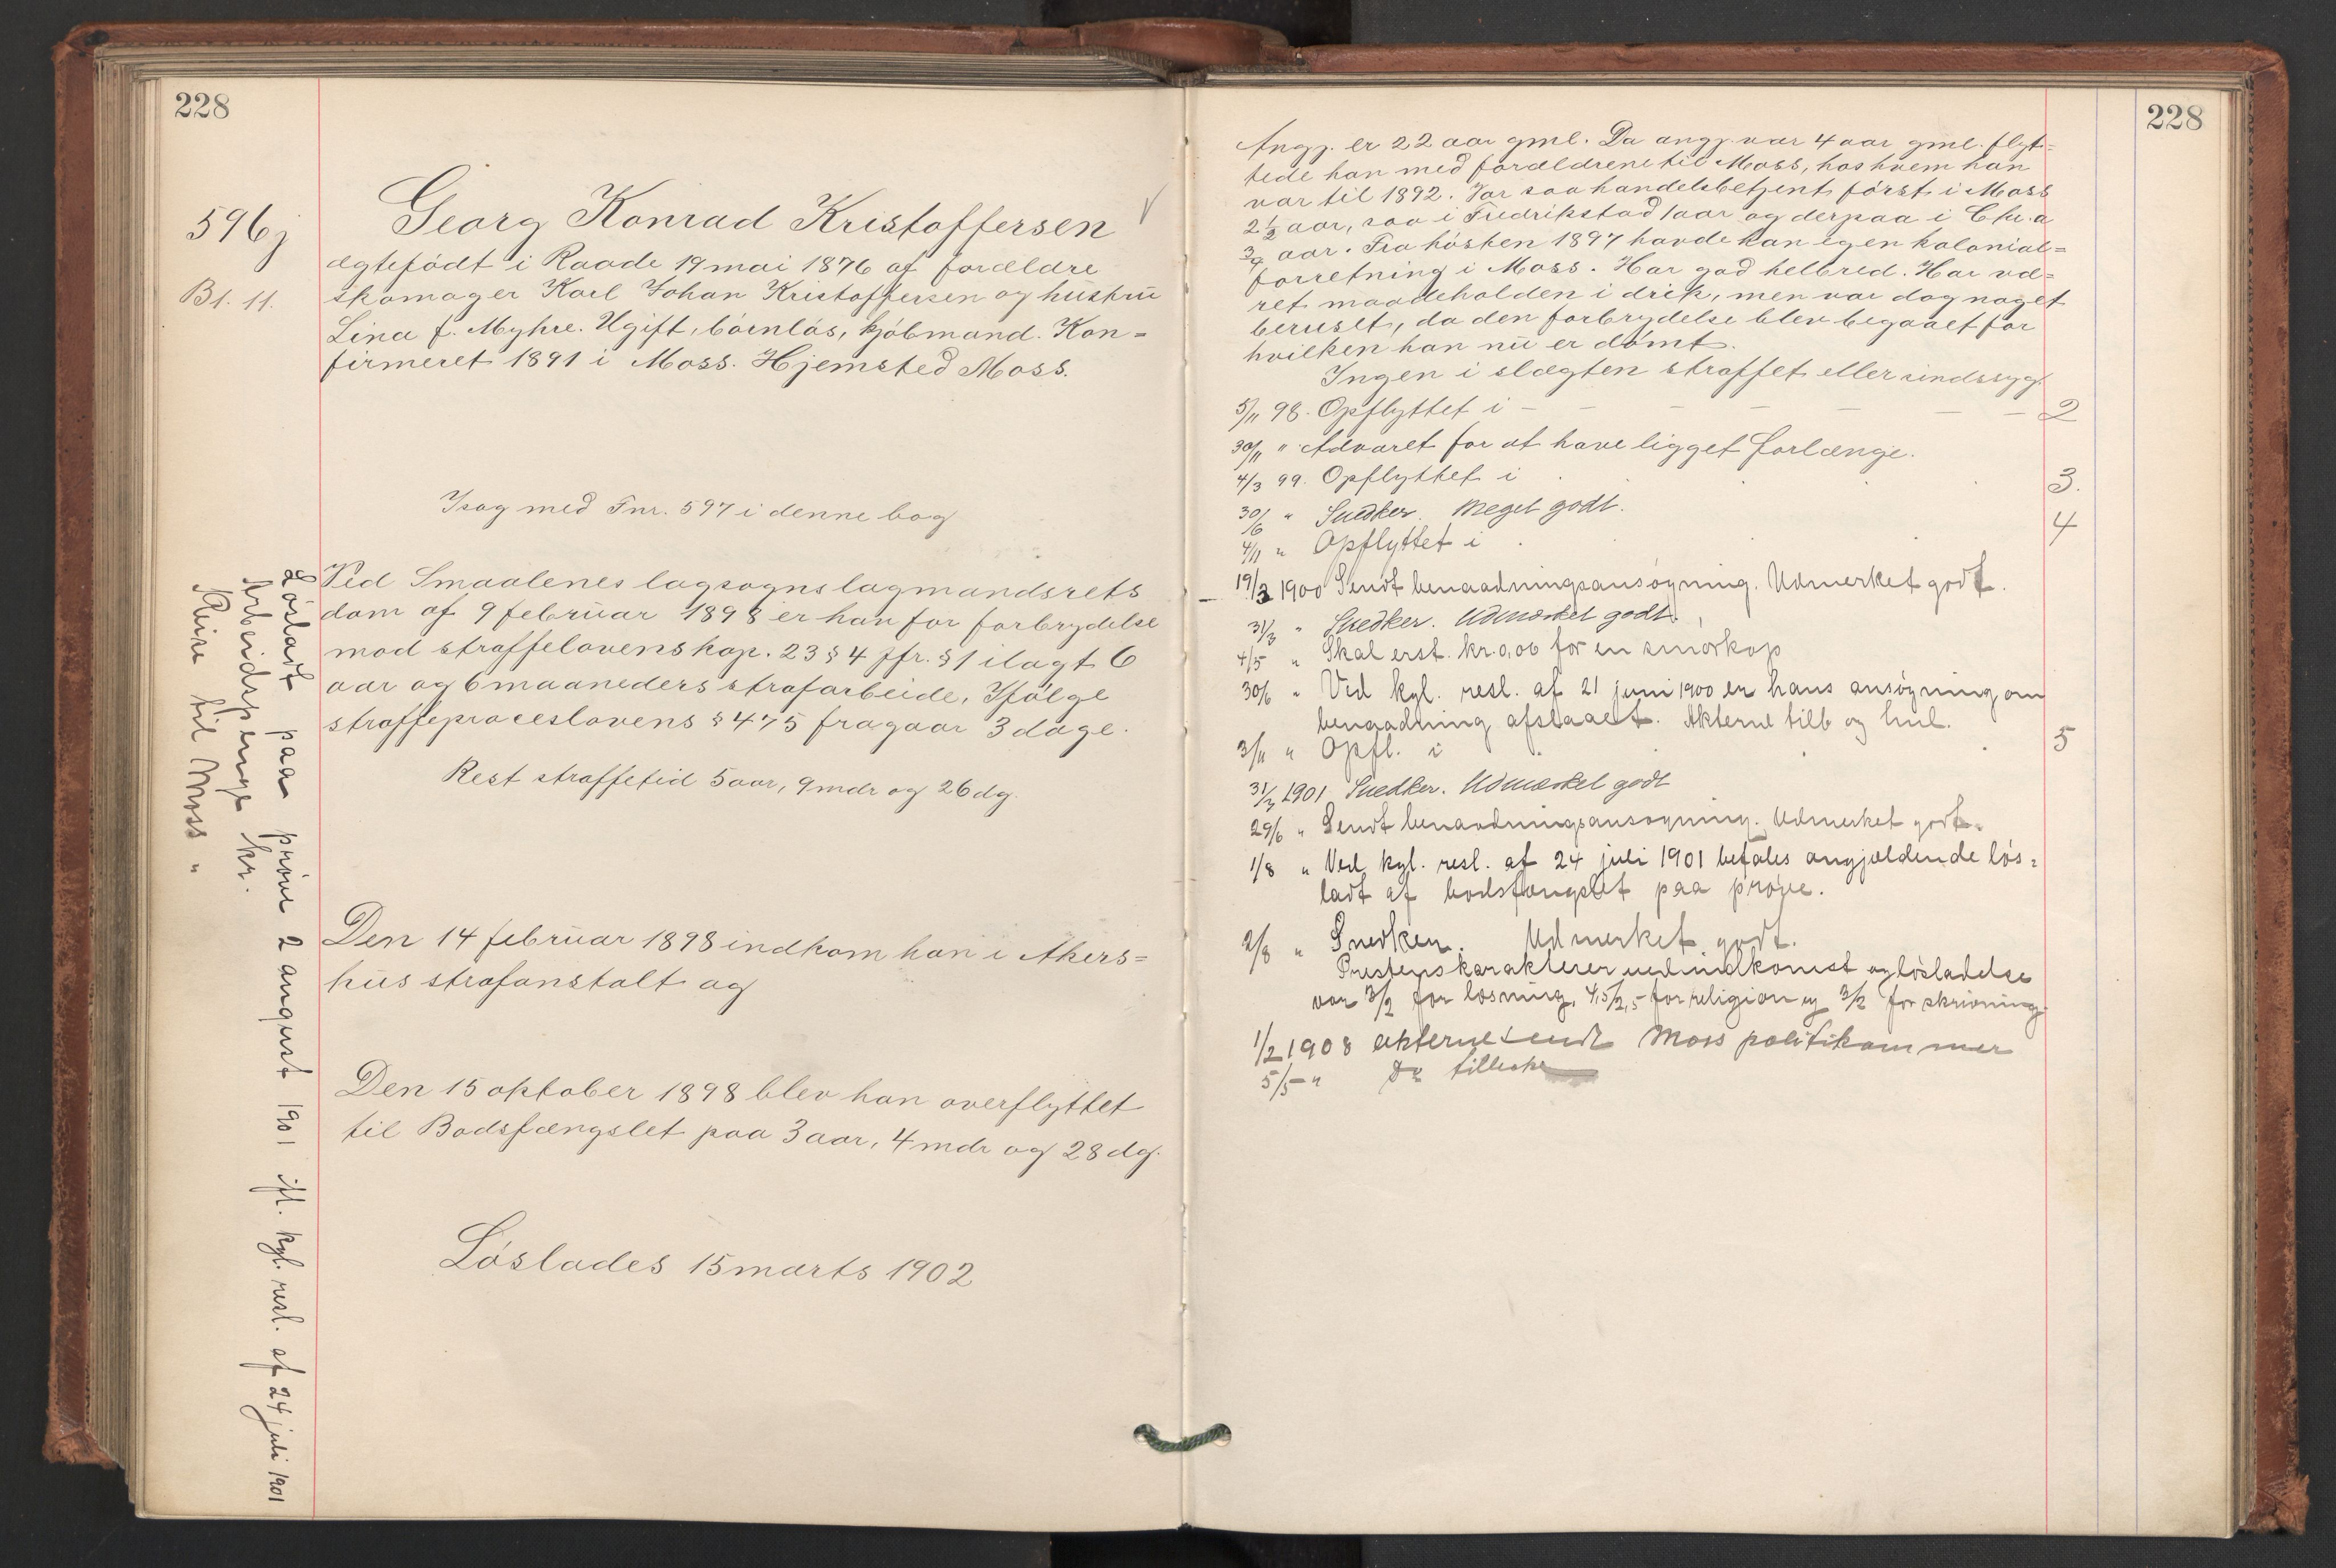 228
596j
Bl. 11.
Georg Konrad Kristoffersen
ægtefödt i Raade 19 mai 1876 af forældre
skomager Karl Johan Kristoffersen og hustru
Lina f. Myhre. Ugift, börnlös, kjöbmand. Kon=
firmeret 1891 i Moss. Hjemsted Moss.
I sag med Fnr. 597 i denne bog
Ved Smaalenes lagsogns lagmandsrets
dom af 9 februar 1898 er han for forbrydelse
mod straffelovens kap. 23 § 4 jfr. § 1 ilagt 6
aar og 6 maaneders strafarbeide. Ifölge
straffeproceslovens § 475 fragaar 3 dage.
Rest straffetid 5 aar, 9 mdr og 26 dg.
Den 14 februar 1898 indkom han i Akers=
hus strafanstalt og
Den 15 oktober 1898 blev han overflyttet
til Bodsfængslet paa 3 aar, 4 mdr og 28 dg.
Löslades 15 marts 1902
Lösladt paa pröve 2 august 1901 ifl. kgl. resl. af 24 juli 1901
Arbeidspenge kr.
Reise til Moss "
228
Angj. er 22 aar gml. Da angj. var 4 aar gml. flyt=
tede han med forældrene til Moss, hos hvem han
var til 1892. Var saa handelsbetjent först i Moss
2½ aar, saa i Fredrikstad 1 aar og derpaa i Chr.a
¾ aar. Fra hösten 1897 havde han egen kolonial=
forretning i Moss. Har god helbred. Har væ=
ret maadeholden i drik, men var dog noget
beruset, da den forbrydelse blev begaaet for
hvilken han nu er dömt.
Ingen i slægten straffet eller sindssyg.
5/11 98. Opflyttet i - - - - - - 2
30/11 " Advaret for at have ligget forlænge.
4/3 99. Opflyttet i . . . 3.
30/6 " Snedker. Meget godt.
4/11 " Opflyttet i . . . 4
19/3 1900 Sendt benaadningsansøgning. Udmerket godt.
31/3 " Snedker. Udmærket godt.
4/5 " Skal erst. kr. 0,06 for en smörkop
30/6 " Ved kgl. resl. af 21 juni 1900 er hans ansögning om
benaadning afslaaet. Akterne tilb og hnl.
3/11 " Opfl. i . . . 5
31/3 1901 Snedker. Udmærket godt
29/6 " Sendt benaadningsansøgning. Udmerket godt.
1/8 " Ved kgl. resl. af 24 juli 1901 befales angjældende lös=
ladt af bodsfængslet paa pröve.
2/8 " Snedker. Udmerket godt.
Prestens karakterer ved indkomst og lösladelse
var 3/2 for læsning, 4,5/2,5 for religion og 3/2 for skrivning.
1/2 1908 akterne sendt Moss politikammer
5/5 - " Do tilbake